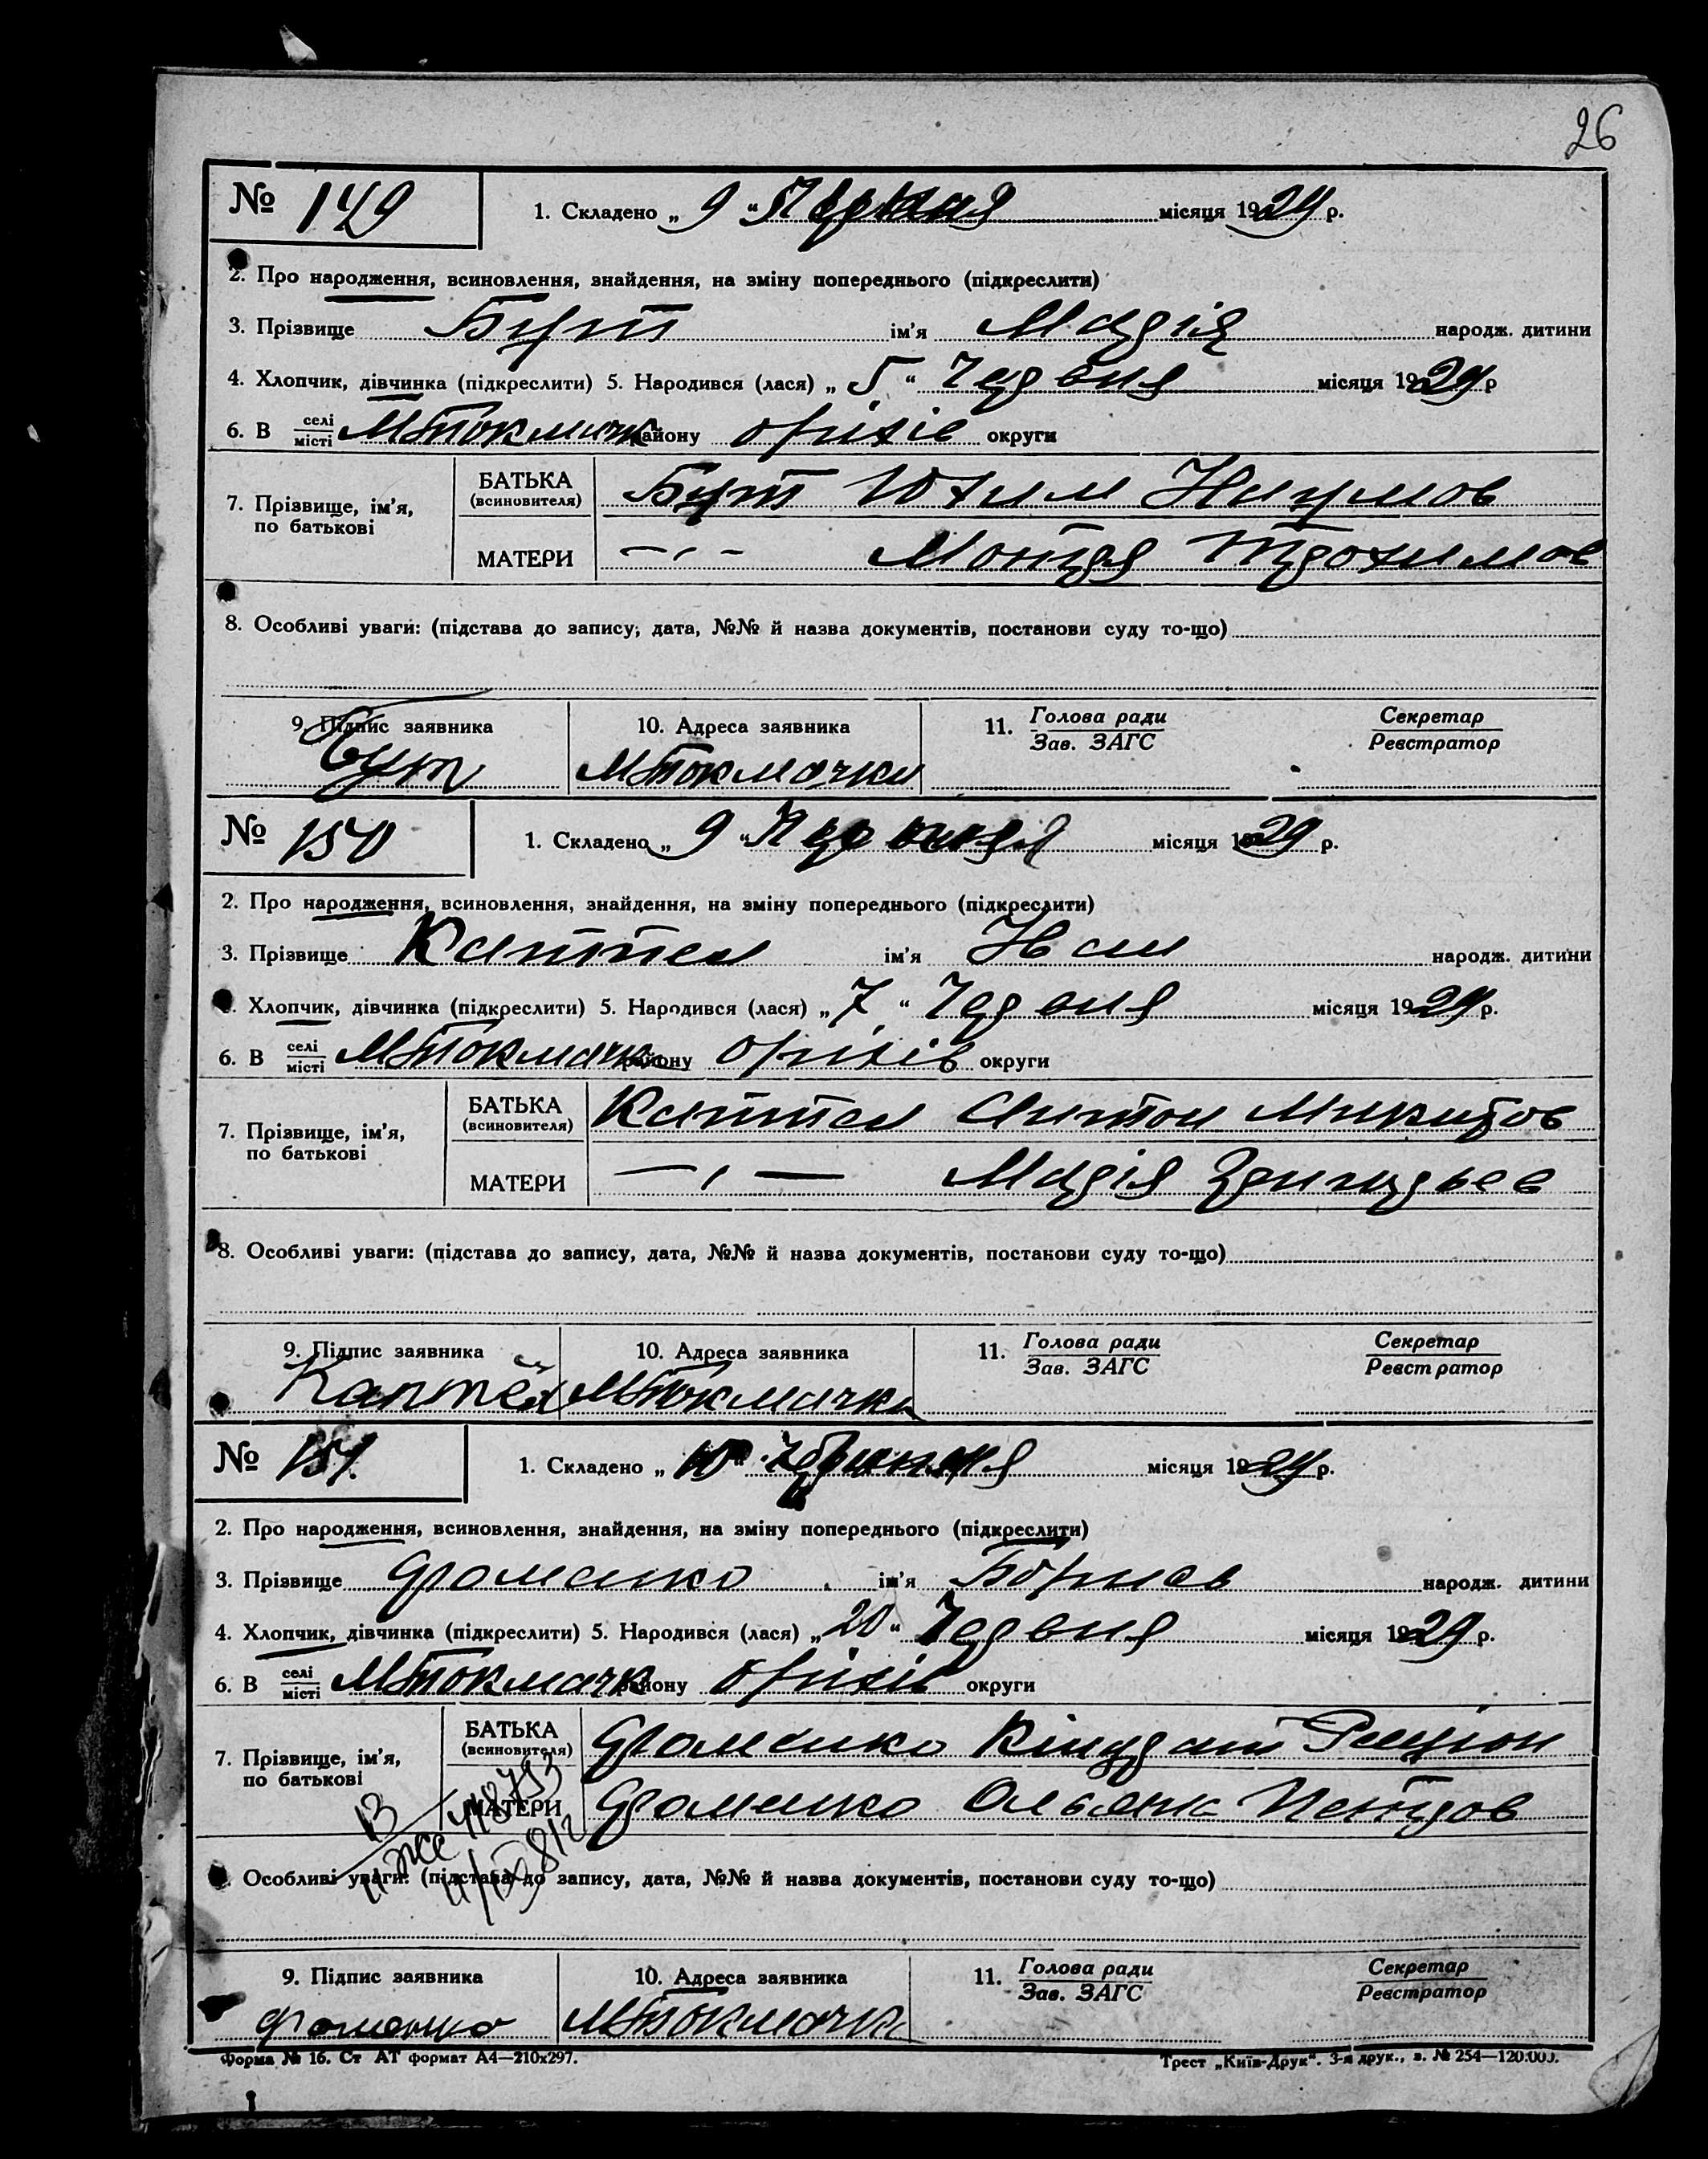 26
№ 149 1. Складено „ 9 “ місяця 1929 р.
2. Про народження, всиновлення, знайдення, на зміну попереднього (підкреслити)
3. Прізвище Бут ім'я Марія народж. дитини
4. Хлопчик, дівчинка (підкреслити) 5. Народився (лася) „ 5 “ Червня місяця 1929 р
6. В селі місті МТокмачк району Оріхів округи
7. Прізвище, ім'я, по батькові
БАТЬКА (всиновителя) Бут Юхим Наумов
МАТЕРИ —ı— Мотря Трохимов
8. Особливі уваги: (підстава до запису, дата, №№ й назва документів, постанови суду то-що)
9. Підпис заявника 10. Адреса заявника 11. Голова ради Зав. ЗАГС Секретар Реєстратор
Бут МТокмачки
№ 150 1. Складено „ 9 “ місяця 1929 р.
2. Про народження, всиновлення, знайдення, на зміну попереднього (підкреслити)
3. Прізвище Каптел ім'я Іван народж. дитини
Хлопчик, дівчинка (підкреслити) 5. Народився (лася) „ 7 “ Червня місяця 1929 р.
6. В селі місті МТокмачк району Оріхів округи
7. Прізвище, ім'я, по батькові
БАТЬКА (всиновителя) Каптел Антон Микитов
МАТЕРИ —ı— Марія Григорьев
8. Особливі уваги: (підстава до запису, дата, №№ й назва документів, постанови суду то-що)
9. Підпис заявника 10. Адреса заявника 11. Голова ради Зав. ЗАГС Секретар Реєстратор
Каптел МТокмачка
№ 151. 1. Складено „ 10 “ місяця 1929 р.
2. Про народження, всиновлення, знайдення, на зміну попереднього (підкреслити)
3. Прізвище Фоменко ім'я Борисв народж. дитини
4. Хлопчик, дівчинка (підкреслити) 5. Народився (лася) „ 20 “ Червня місяця 1929 р.
6. В селі місті МТокмачк району Оріхів округи
7. Прізвище, ім'я, по батькові
БАТЬКА (всиновителя) Фоменко
МАТЕРИ Фоменко Петров
Особливі уваги: (підстава до запису, дата, №№ й назва документів, постанови суду то-що)
9. Підпис заявника 10. Адреса заявника 11. Голова ради Зав. ЗАГС Секретар Реєстратор
Фоменко МТокмачк
Форма № 16. Ст АТ формат А4—210х297. Трест „Київ-Друк“. 3-я друк., з. № 254—120.000.